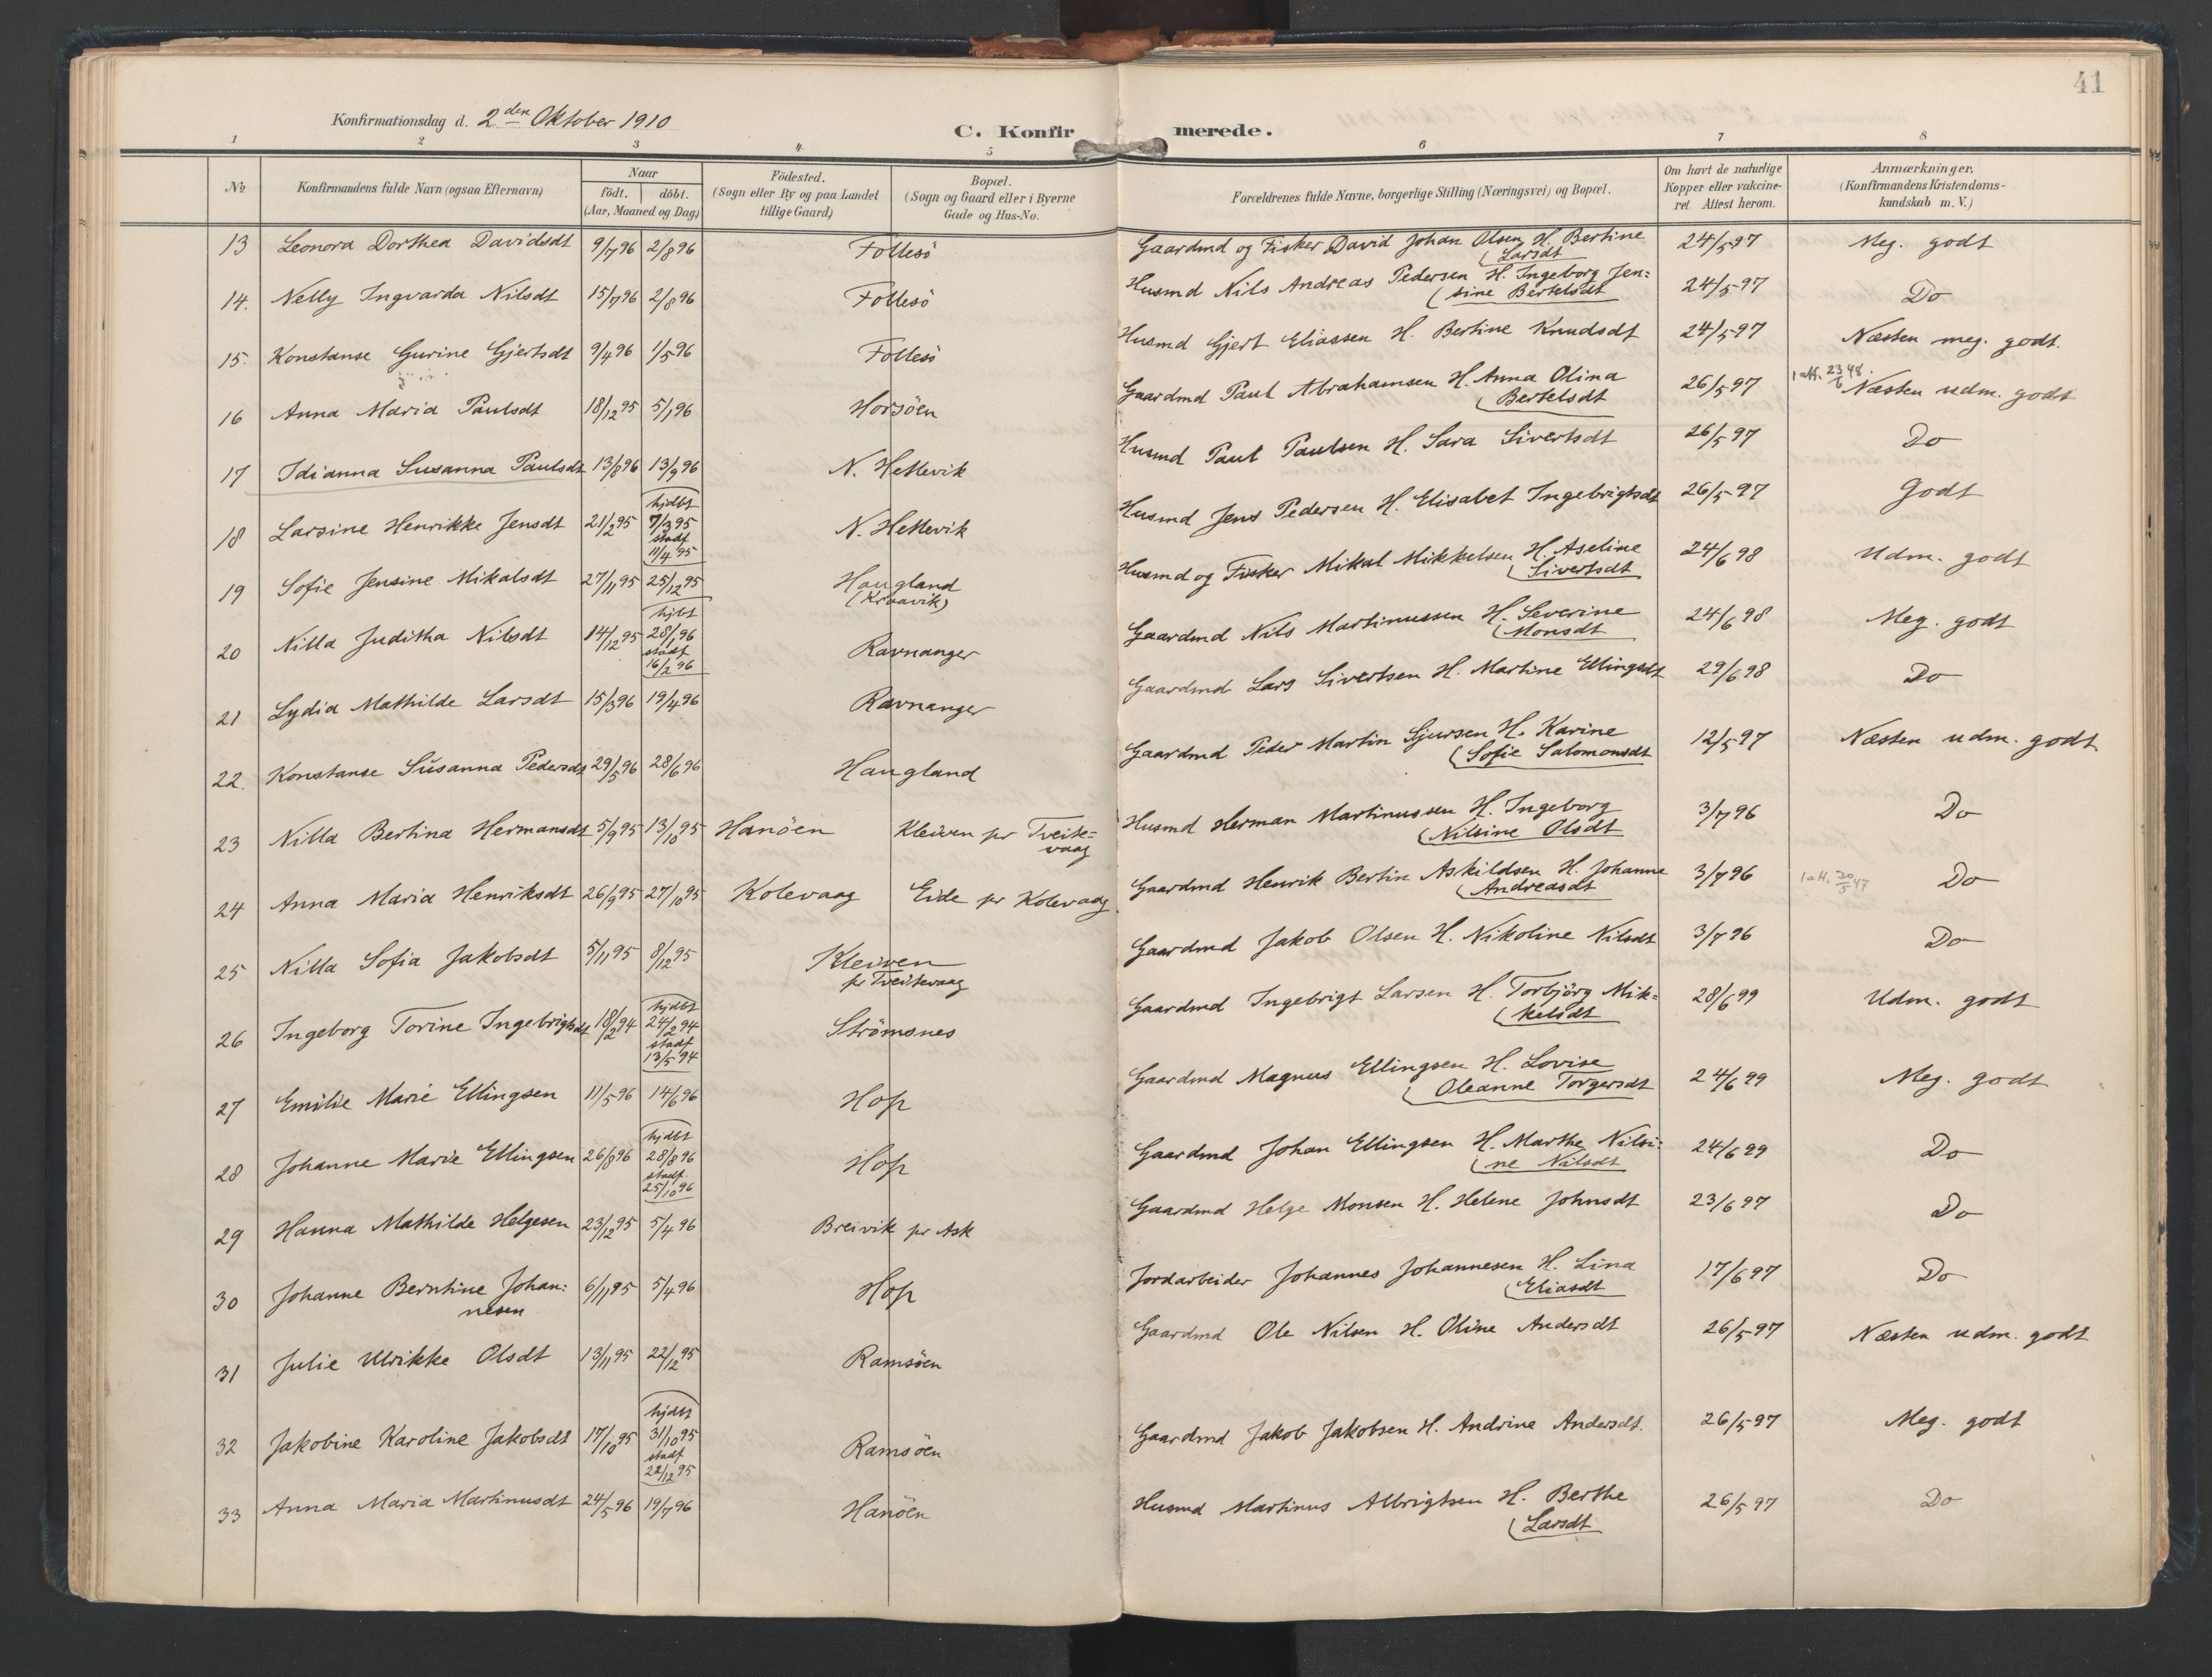 41
Konfirmationsdag d. 2den Oktober 1910
C. Konfirmerede.
1 2 3 4 5 6 7 8
No
Konfirmandens fulde Navn (ogsaa Efternavn)
Naar
födt. döbt.
(Aar, Maaned og Dag)
Födested.
(Sogn eller By og paa Landet
tillige Gaard)
Bopæl.
(Sogn og Gaard eller i Byerne
Gade og Hus-No.
Forældrenes fulde Navne, borgerlige Stilling (Næringsvei) og Bopæl.
Om havt de naturlige
Kopper eller vakcine-
ret. Attest herom.
Anmærkninger.
(Konfirmandens Kristendoms-
kundskab m. V.)
13 Leonora Dorthea Davidsdt 9/7 96 2/8 96 Follesö Gaardmd og Fisker David Johan Olsen H. Bertine 24/5 97 Meg. godt
(Larsdt
14. Nelly Ingvarda Nilsdt 15/7 96 2/8 96 Follesö Husmd Nils Andreas Pedersen H. Ingeborg Jen= 24/5 97 Do
(sine Bertelsdt
15. Konstanse Gurine Gjertsdt 9/4 96 1/5 96 Follesö Husmd Gjert Eliassen H. Bertine Knudsdt 24/5 97 Næsten meg. godt.
1 att. 23/6 48.
16 Anna Maria Paulsdt 18/12 95 5/1 96 Horsöen Gaardmd Paul Abrahamsen H. Anna Olina 26/5 97 Næsten udm. godt
(Bertelsdt
17 Idianna Susanna Paulsdt 13/8 96 13/9 96 N. Hellevik Husmd Paul Paulsen H. Sara Sivertsdt 26/5 97 Do
18 Larsine Henrikke Jensdt 21/2 95 hjdbt 7/3 95 stadf 11/4 95 N. Hellevik Husmd Jens Pedersen H. Elisabet Ingebrigtsdt 26/5 97 Godt
19 Sofie Jensine Mikalsdt 27/11 95 25/12 95 Haugland Husmd og Fisker Mikal Mikkelsen H. Aseline 24/6 98 Udm. godt
(Kraavik) (Sivertsdt
20 Nilla Juditha Nilsdt 14/12 95 hjbt 28/1 96 stadf 16/2 96 Ravnanger Gaardmd Nils Martinussen H. Severine 24/6 98 Meg. godt
(Monsdt
21 Lydia Mathilde Larsdt 15/3 96 19/4 96 Ravnanger Gaardmd Lars Sivertsen H. Martine Ellingsdt 29/6 98 Do
22. Konstanse Susanna Pedersdt 29/5 96 28/6 96 Haugland Gaardmd Peder Martin Sjursen H. Karine 12/5 97 Næsten udm. godt
(Sofie Salomonsdt
23 Nilla Bertina Hermansdt 5/9 95 13/10 95 Hanöen Kleiven pr Tveite= Husmd Herman Martinussen H. Ingeborg 3/7 96 Do
vaag (Nilsine Olsdt
24 Anna Maria Henriksdt 26/9 95 27/10 95 Kolevaag Eide pr Kolevaag Gaardmd Henrik Bertin Askildsen H. Johanne 3/7 96 1 att. 30/5 47 Do
(Andreasdt
25 Nilla Sofia Jakobsdt 5/11 95 8/12 95 Kleiven Gaardmd Jakob Olsen H. Nikoline Nilsdt 3/7 96 Do
pr Tveitevaag
26 Ingeborg Torine Ingebrigtsdt 18/2 94 hjdbt 24/2 94 stadf 13/5 94 Strömsnes Gaardmd Ingebrigt Larsen H. Torbjörg Mik= 28/6 99 Udm. godt
(kelsdt
27 Emilie Marie Ellingsen 11/5 96 14/6 96 Hop Gaardmd Magnus Ellingsen H. Lovise 24/6 99 Meg. godt
(Oleanne Torgersdt
28 Johanne Marie Ellingsen 26/8 96 hjdbt 28/8 96 stadf. 25/10 96 Hop Gaardmd Johan Ellingsen H. Marthe Nilsi: 24/6 99 Do
(ne Nilsdt
29 Hanna Mathilde Helgesen 23/12 95 5/4 96 Breivik pr Ask Gaardmd Helge Monsen H. Helene Johnsdt 23/6 97 Do
30 Johanne Berntine Johan: 6/11 95 5/4 96 Hop Jordarbeider Johannes Johannesen H. Lina 17/6 97 Do
nesen (Eliasdt
31 Julie Ulrikke Olsdt 13/11 95 22/12 95 Ramsöen Gaardmd Ole Nilsen H. Oline Andersdt 26/5 97 Næsten udm. godt
32 Jakobine Karoline Jakobsdt 17/10 95 hjdbt 31/10 95 stadf 22/12 95 Ramsöen Gaardmd Jakob Jakobsen H. Andrine Andersdt. 26/5 97 Meg. godt
33 Anna Maria Martinusdt 24/5 96 19/7 96 Hanöen Husmd Martinus Albrigtsen H. Berthe 26/5 97 Do
(Larsdt